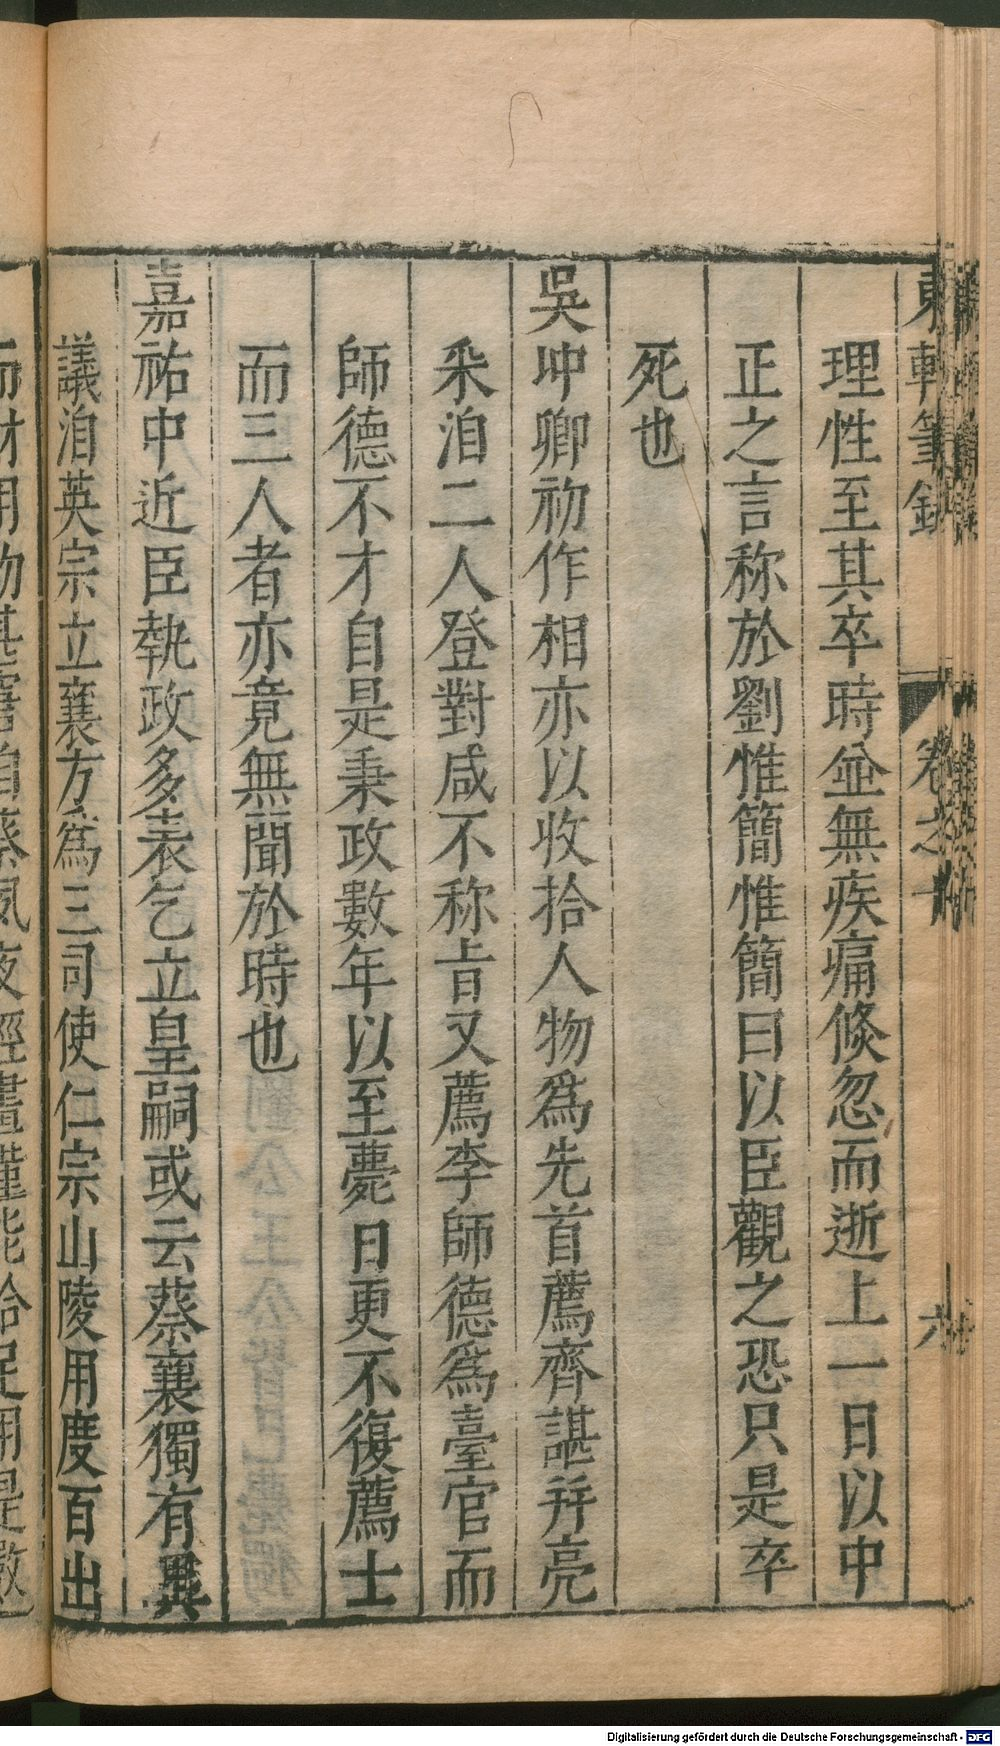 東軒筆錄 卷之十 六
理性至其卒時並無疾痛倏忽而逝上一日以中
正之言称於劉惟簡惟簡曰以臣觀之恐只是卒
死也
吳冲卿初作相亦以收拾人物爲先首薦齊諶并亮
采洎二人登對咸不称旨又薦李師德爲臺官而
師德不才自是秉政數年以至薨日更不復薦士
而三人者亦竟無聞於時也
嘉祐中近臣執政多表乞立皇嗣或云蔡襄獨有異
議洎英宗立襄方爲三司使仁宗山陵用度百出
而財用物其
Digitalisierung gefördert durch die Deutsche Forschungsgemeinschaft - DFG